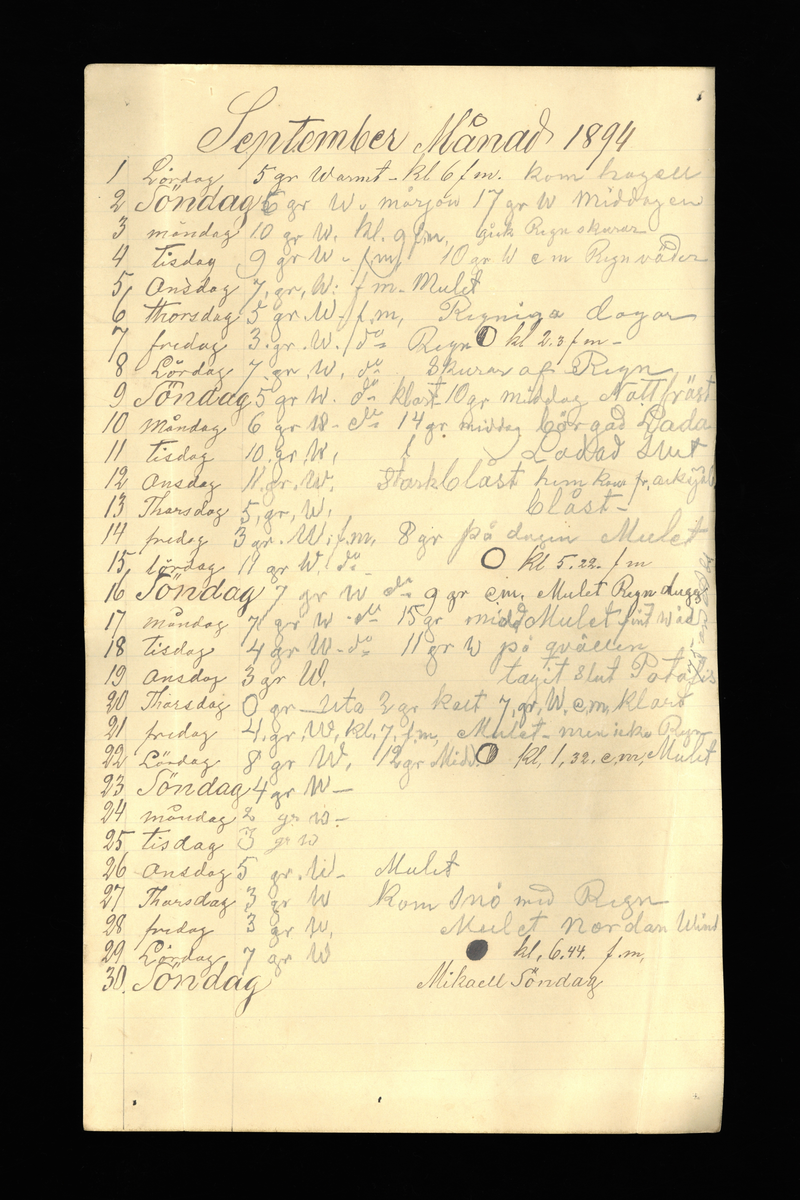 September Månad 1894
1 Lördag 5 gr Warmt - kl 6 f m. kom hagell
2 Söndag 6 gr W. mårgon 17 gr W Middagen
3 måndag 10 gr W. kl. 9 f.m. gick Regn skurar
4 tisdag 9 gr W - f m 10 gr W e m Regn väder
5, Onsdag 7, gr, W: f m - Mulet
6 thorsdag 5 gr W - f.m, Regniga dagar
7 fredag 3. gr. W. do Regn kl 2.3 f m -
8 Lördag 7 gr W, do Skurar af Regn
9 Söndag 5 gr W. do klart - 10 gr middag Nattfråst
10 Måndag 6 gr W - do 14 gr middag börgad Lada
11 tisdag 10. gr. W, Ladad Slut
12 Onsdag 11. gr. W. Stark blåst hem kom fr,
13 Thorsdag 5, gr, W, blåst -
14 fredag 3 gr. W. f.m, 8 gr på dagen Mulet
15, lördag 11 gr W. do kl 5.22. f m
16 Söndag 7 gr W do 9 gr e m. Mulet Regn dugg
17 måndag 7 gr W - do 15 gr midd Mulet fint wäd
18 Tisdag 4 gr W - do 11 gr W på qvällen
19 onsdag 3 gr W. tagit slut Potatis
20 Thorsdag 0 gr - Uta 2 gr kalt 7, gr, W, e, m, Klart
21 fredag 4, gr, W, kl, 7, f m, Mulet - men icke Regn
22 Lördag 8 gr W, 12 gr Midd kl, 1, 32. e.m, Mulet
23 Söndag 4 gr W -
24 måndag 2 gr W -
25, tisdag 3 gr W
26 onsdag 5 gr. W - Mulet
27 Thorsdag 3 gr W Kom Snö med Regn
28 fredag 3 gr W, Mulet Nordan Wind
29 Lördag 7 gr W kl, 6.44. f.m,
30. Söndag Mikaell Söndag